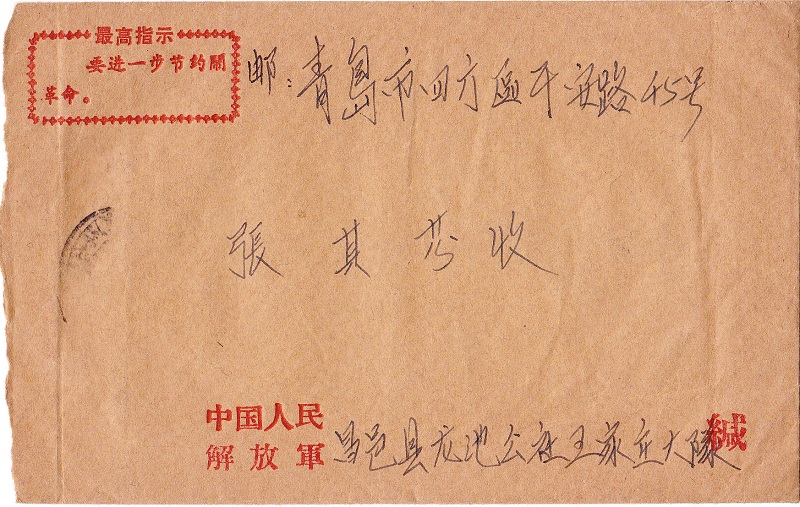 最高指示
要进一步节约闹
革命。
邮:青岛市四方区平安路45号
張其芬收
中国人民
解放軍
昌邑县龙池公社王家庄大隊
缄